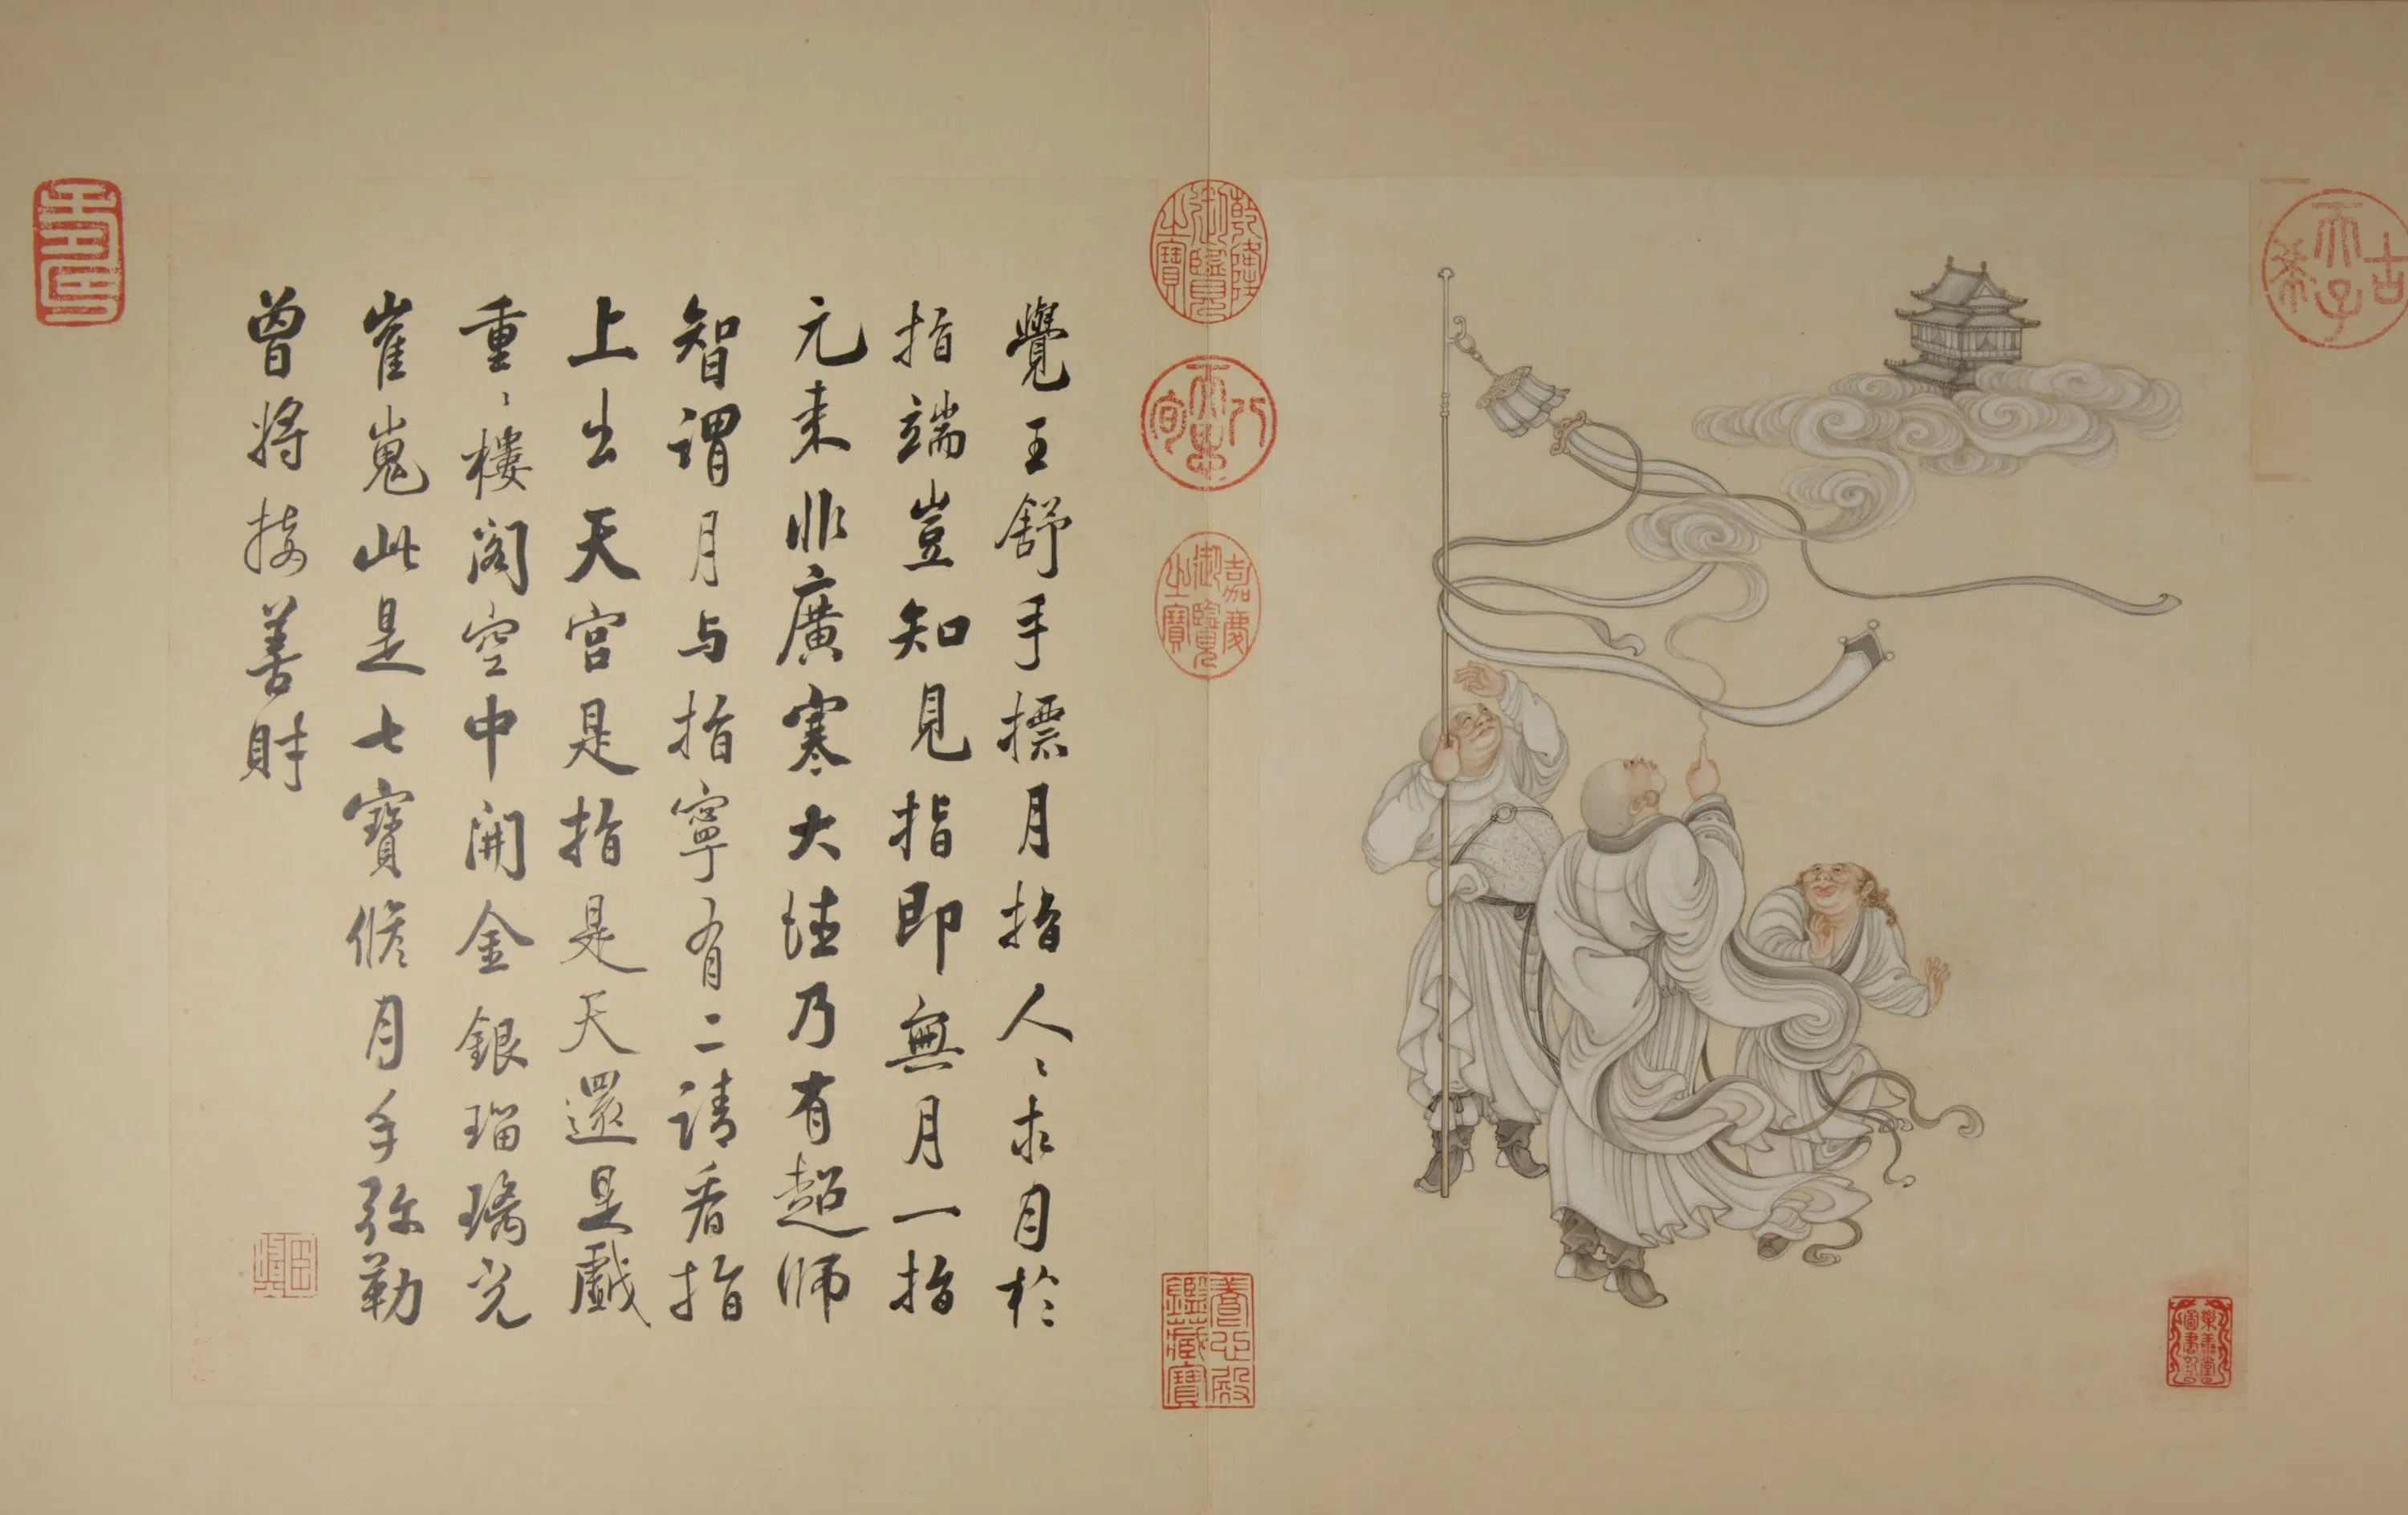 古希天子
樂善堂圖書記
乾隆御覽之寶
八旬天恩
嘉慶御覽之寶
養心殿鑑藏寶
覺王舒手標月指人〻求月於
指端豈知見指即無月一指
元来非廣寒大乃有超師
智謂月与指寧有二請看指
上出天宮是指是天還是戲
重〻樓閣空中開金銀瑠璃光
崔嵬此是七寶修月手弥勒
曾將接善財
壽